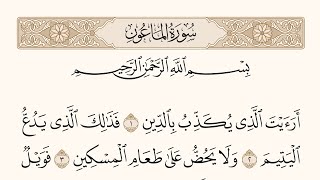 سُورَةُ المَاعُونِ
بِسْمِ اللَّهِ الرَّحْمَٰنِ الرَّحِيمِ
أَرَءَيْتَ الَّذِي يُكَذِّبُ بِالدِّينِ ١ فَذَٰلِكَ الَّذِي يَدُعُّ
الْيَتِيمَ ٢ وَلَا يَحُضُّ عَلَىٰ طَعَامِ الْمِسْكِينِ ٣ فَوَيْلٌ